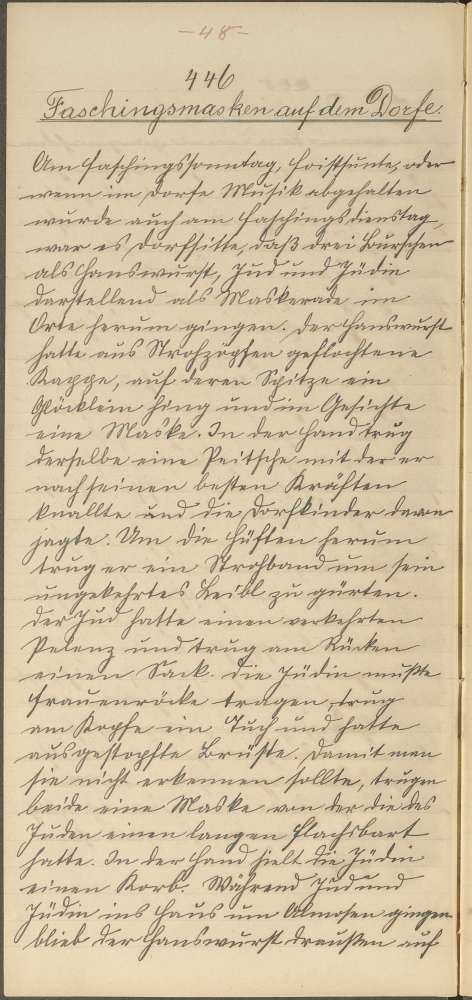 -48-
446
Faschingsmasken auf dem Dorfe.
Am Faschingssonntag, oder
wenn im Dorfe Musik abgehalten
wurde auch am Faschingsdienstag,
war es Dorfsitte, daß drei Burschen
als Hanswurst, Jud und Jüdin
darstellend als Maskerade im
Orte herum gingen. Der Hanswurst
hatte aus Strohzöpfen geflochtene
Kappe, auf deren Spitze ein
Glöcklein hing und im Gesichte
eine Maske. In der Hand trug
derselbe eine Peitsche mit der er
nach seinen besten Kräften
knallte und die Dorfkinder davon
jagte. Um die Hüften herum
trug er ein Strohband um sein
umgekehrtes Leibl zu gürten.
Der Jud hatte einen verkehrten
Pelenz und trug am Rücken
einen Sack. Die Jüdin mußte
Frauenröcke tragen, trug
am Kopfe ein Tuch und hatte
ausgestopfte Brüste. Damit man
sie nicht erkennen sollte, trugen
beide eine Maske von der die des
Juden einen langen Flachsbart
hatte. In der Hand hielt die Jüdin
einen Korb. Während Jud und
Jüdin ins Haus um Almosen gingen
blieb der Hanswurst draußen auf